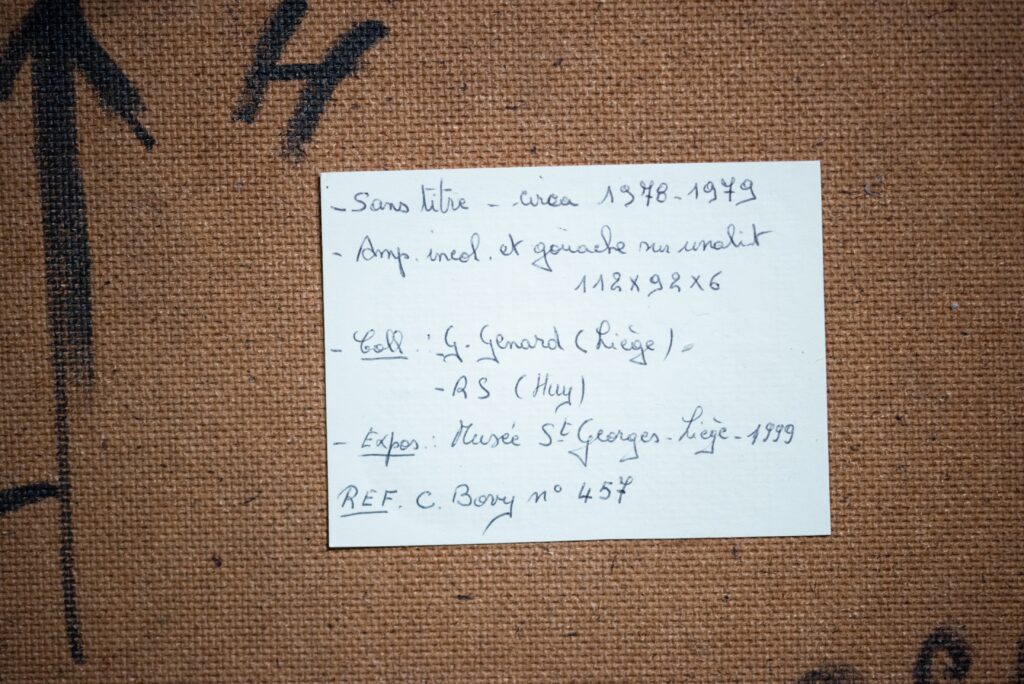 H
- Sans titre - circa 1978-1979
- Amp. incol. et gouache sur unalit
112x92x6
- Coll : G. Genard (Liège) -
- RS (Huy)
- Expos. : Musée St Georges - Liège - 1999
REF. C. Bovy n° 457